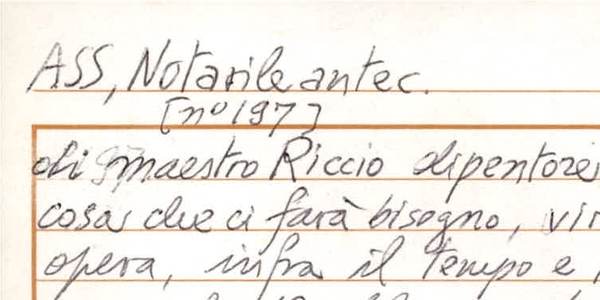 ASS, Notarile antec.
[nº 197]
di maestro Riccio dipentore
cosa che ci farà bisogno,
opera, infra il tempo e